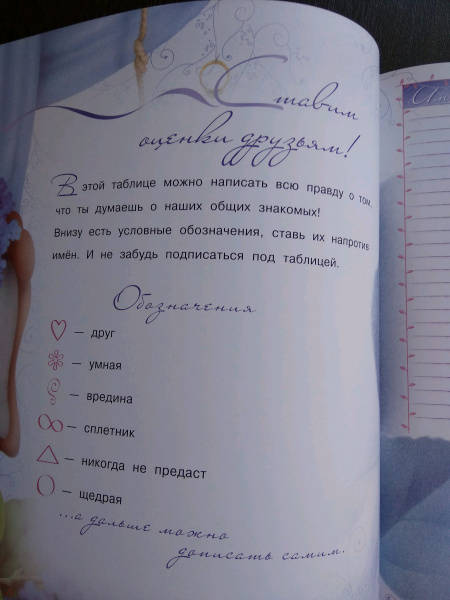 Ставим
оценки друзьям!
В этой таблице можно написать всю правду о том,
что ты думаешь о наших общих знакомых!
Внизу есть условные обозначения, ставь их напротив
имён. И не забудь подписаться под таблицей.
Обозначения
♡ — друг
— умная
— вредина
∞ — сплетник
△ — никогда не предаст
○ — щедрая
...а дальше можно
дописать самим.